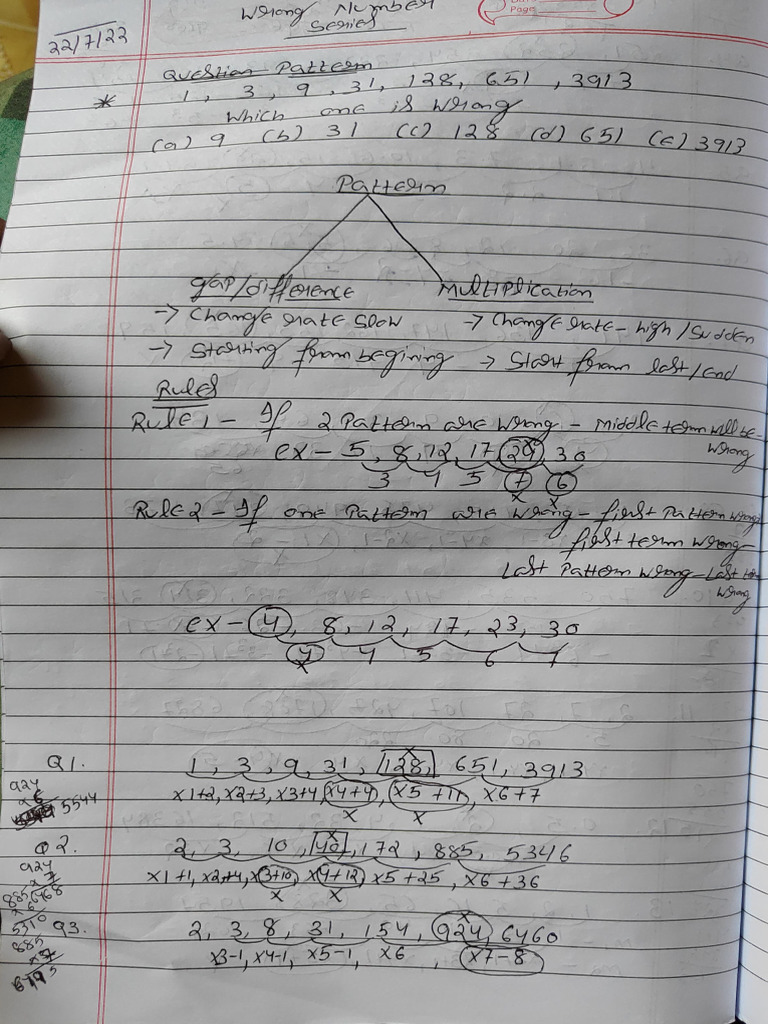 Wrong Number
Series
Page
22/7/22
Question Pattern
* 1, 3, 9, 31, 128, 651, 3913
Which one is wrong
(a) 9 (b) 31 (c) 128 (d) 651 (e) 3913
Pattern
gap/difference Multiplication
→ Change rate slow → Change rate - high/sudden
→ Starting from begining → Start from last/end
Rules
Rule 1 - If 2 Pattern are wrong - Middle term will be wrong
ex - 5, 8, 12, 17, 24, 30
3 4 5 7 6
x x
Rule 2 - If one Pattern are wrong - first Pattern wrong
first term wrong -
Last Pattern wrong - Last term wrong
ex - 4, 8, 12, 17, 23, 30
4 4 5 6 7
x
Q1. 1, 3, 9, 31, 128, 651, 3913
x1+2, x2+3, x3+4, x4+4, x5+11, x6+7
x x
924
x6
5544
Q2. 2, 3, 10, 40, 172, 885, 5346
x1+1, x2+4, x3+10, x4+12, x5+25, x6+36
x x
924
x7
6468
885
x6
5310
Q3. 2, 3, 8, 31, 154, 924, 6460
x3-1, x4-1, x5-1, x6, x7-8
885